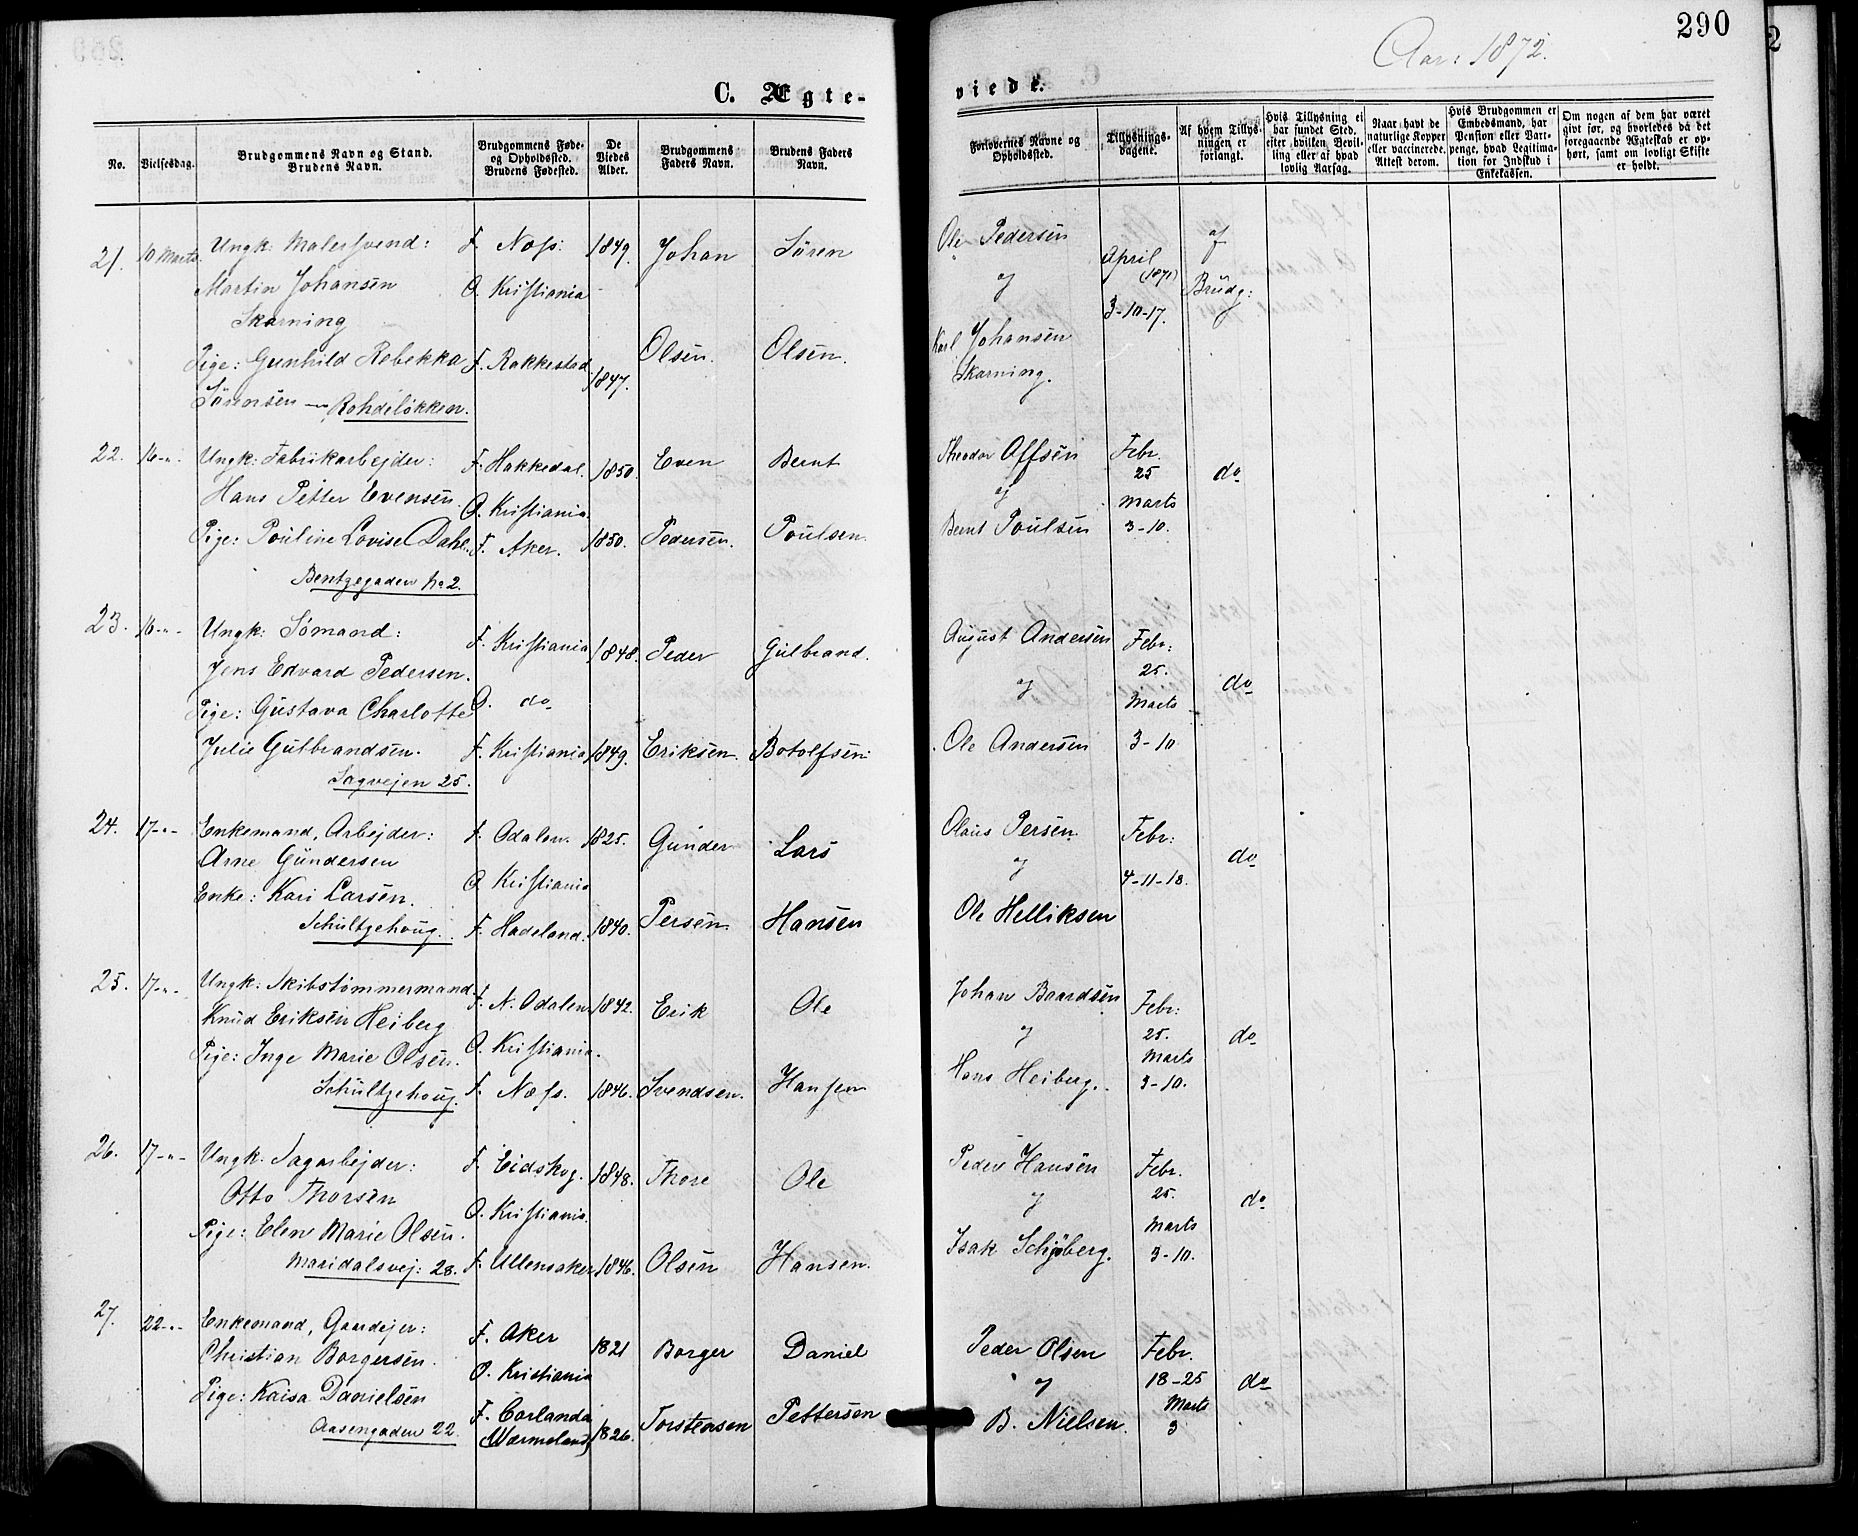 290
Aar: 1872.
C. Ægte-
viede.
No.
Vielsesdag.
Brudgommens Navn og Stand.
Brudens Navn.
Brudgommens Føde-
og Opholdssted.
Brudens Fødested.
De
Viedes
Alder.
Brudgommens
Faders Navn.
Brudens Faders
Navn.
Forlovernes Navne og
Opholdssted.
Tillysnings-
dagene.
Af hvem Tillys-
ningen er
forlangt.
Hvis Tillysning ei
har fundet Sted,
efter hvilken Bevil-
ling eller af hvad
lovlig Aarsag.
Naar havt de
naturlige Kopper
eller vaccinerede.
Attest derom.
Hvis Brudgommen er
Embedsmand, har
Pension eller Vart-
penge, hvad Legitima-
tion for Indskud i
Enkekassen.
Om nogen af dem har været
givt før, og hvorledes da det
foregaaende Ægteskab er op-
hørt, samt om lovligt Skifte
er holdt.
21. 10 Marts. Ungk: Malersvend: F. Næss. 1849. Johan Sören Ole Pedersen af
Martin Johansen O. Kristiania og April (1871) Brudg:
Skarning 3-10-17.
Pige: Gunhild Rebekka F. Rakkestad. 1847. Olsen. Olsen. Karl Johansen
Sörensen — Rohdeløkken. Skarning.
22. 16-"- Ungk: Fabrikarbejder: F. Hakkedal. 1850. Even Bernt Theodor Offsen Febr. do
Hans Petter Evensen. O. Kristiania. og 25 Marts
Pige: Pouline Lovise Dahl. F. Aker. 1850. Pedersen. Poulsen. Bernt Poulsen 3-10.
Bentzegaden No 2.
23. 16-"- Ungk: Sömand: F. Kristiania 1848. Peder Gulbrand. August Andersen Febr:
Jens Edvard Pedersen. 25.
Pige: Gustava Charlotte O. do og Marts do
Julie Gulbrandsen. F. Kristiania 1849. Eriksen. Botolfsen. Ole Andersen 3-10
Sagvejen 25.
24. 17-"- Enkemand, Arbejder: F. Odalen. 1825. Gunder Lars Olaus Persen. Febr:
Arne Gundersen O. Kristiania og 4-11-18. do
Enke: Kari Larsen. F. Hadeland. 1840. Persen Hansen Ole Helliksen
Schultzehoug.
25. 17-"- Ungk: Skibstömmermand F. N. Odalen 1842. Erik Ole Johan Baardsen Febr:
Knud Eriksen Heiberg O. Kristiania. og 25. do
Pige: Inge Marie Olsen. Marts
Schultzehoug. F. Næss. 1846. Svendsen. Hansen Hans Heiberg. 3-10.
26. 17-"- Ungk. Sagarbejder: F. Eidskog. 1848. Thore Ole Peder Hansen Febr.
Otto Thorsen O. Kristiania. og 25. do
Pige: Elen Marie Olsen. Marts
Maridalsvej: 28. F. Ullensaker 1846. Olsen Hansen. Isak Schjöberg. 3-10.
27. 22-"- Enkemand, Gaardejer: F. Aker 1821 Borger Daniel Peder Olsen Febr.
Christian Borgersen. O. Kristiania og 18-25 do
Pige: Kaisa Danielsen F. Carlanda Torstensen Pettersen Marts
Aasengaden 22. (Wærmeland) 1826. B. Nielsen. 3